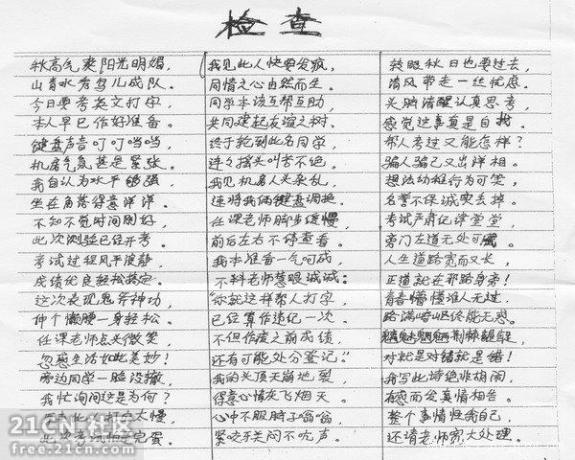 检查
秋高气爽阳光明媚,
山青水秀鸟儿成队.
今日要考英文打字,
本人早已作好准备.
键盘声音叮叮当当,
机房气氛甚是紧张.
我自认为水平够强,
坐在角落得意洋洋.
不知不觉时间刚好,
此次测验已经开考.
考试过程风平浪静,
成绩优良轻松搞定.
这次表现神功,
伸个懒腰一身轻松.
任课老师点头微笑,
忽感生活如此美妙!
旁边同学一脸
我忙询问这是为何?
打字太慢,
此次考试肯定完蛋.
我见此人快要发疯,
同情之心由然而生.
同学本该互帮互助,
共同建起友谊之树.
终于轮到此名同学,
连连摇头叫苦不绝.
我见机房人头杂乱,
速将我俩键盘调换.
任课老师脚步缓慢,
前后左右不停查看.
我本准备一气呵成,
不料老师慧眼诚诚:
"你就这样帮人打字,
已经算作违纪一次.
不但作废之前成绩,
还有可能处分登记."
我的头顶天崩地裂,
得意心情灰飞烟灭.
心中不服脖子嗡嗡,
紧咬牙关闷不吭声.
转眼秋日也要过去,
清风带走一丝忧虑.
头脑清醒认真思考,
感觉这事真是自找.
帮人考过又能怎样?
骗人骗己又出洋相.
想法幼稚行为可笑,
名誉不保诚实丢掉.
考试严肃纪律堂堂,
旁门左道无处可
人生道路宽而又长,
正道就在那路身旁!
青春懵懂谁人无过,
路满崎岖终能无恐.
荆棘
对就是对错就是错!
我写此诗绝非胡闹,
有感而发真情相告.
整个事情怪我自己,
还请老师宽大处理.
21CN社区
free.21cn.com
21CN 社区
free.21cn.com